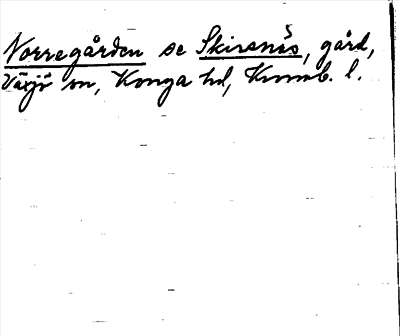 Norregården se Skirsnäs, gård,
Växjö sn, Konga hd, Kronob. l.